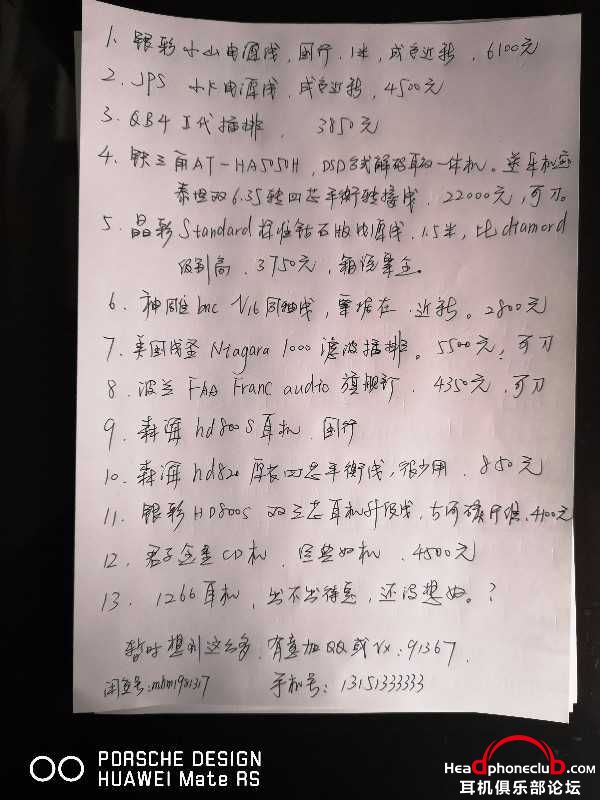 1. 银彩小山电源线，国行，1米，成色近新，6100元
2. JPS 小K电源线，成色近新，4500元
3. QB4 II代插排， 3850元
4. 铁三角AT-HA5050H，DSD台式解码耳放一体机。送乐机
泰坦双6.35转四芯平衡转接线，22000元，可刀。
5. 晶彩Standard标准钻石版电源线，1.5米，比diamord
级别高，3750元，箱
6. 神雕bnc V16同轴线，近新。2800元
7. 美国线圣Niagara 1000 滤波插排。5500元，可刀
8. 波兰FhA Franc audio 旗舰 4350元，可刀
9. 森海hd800S耳机，国行
10. 森海hd820原装四芯平衡线，很少用，850元
11. 银彩HD800S双三芯耳机升级线，4100元
12. 君子 CD机，经典 机，4500元
13. 1266耳机，出不出待定，还没想好。？
暂时想到这么多，有意加QQ或Vx：91367，
闲鱼号:mhm1981317 手机号：13151333333
PORSCHE DESIGN
HUAWEI Mate RS
Headphoneclub.com
耳机俱乐部论坛